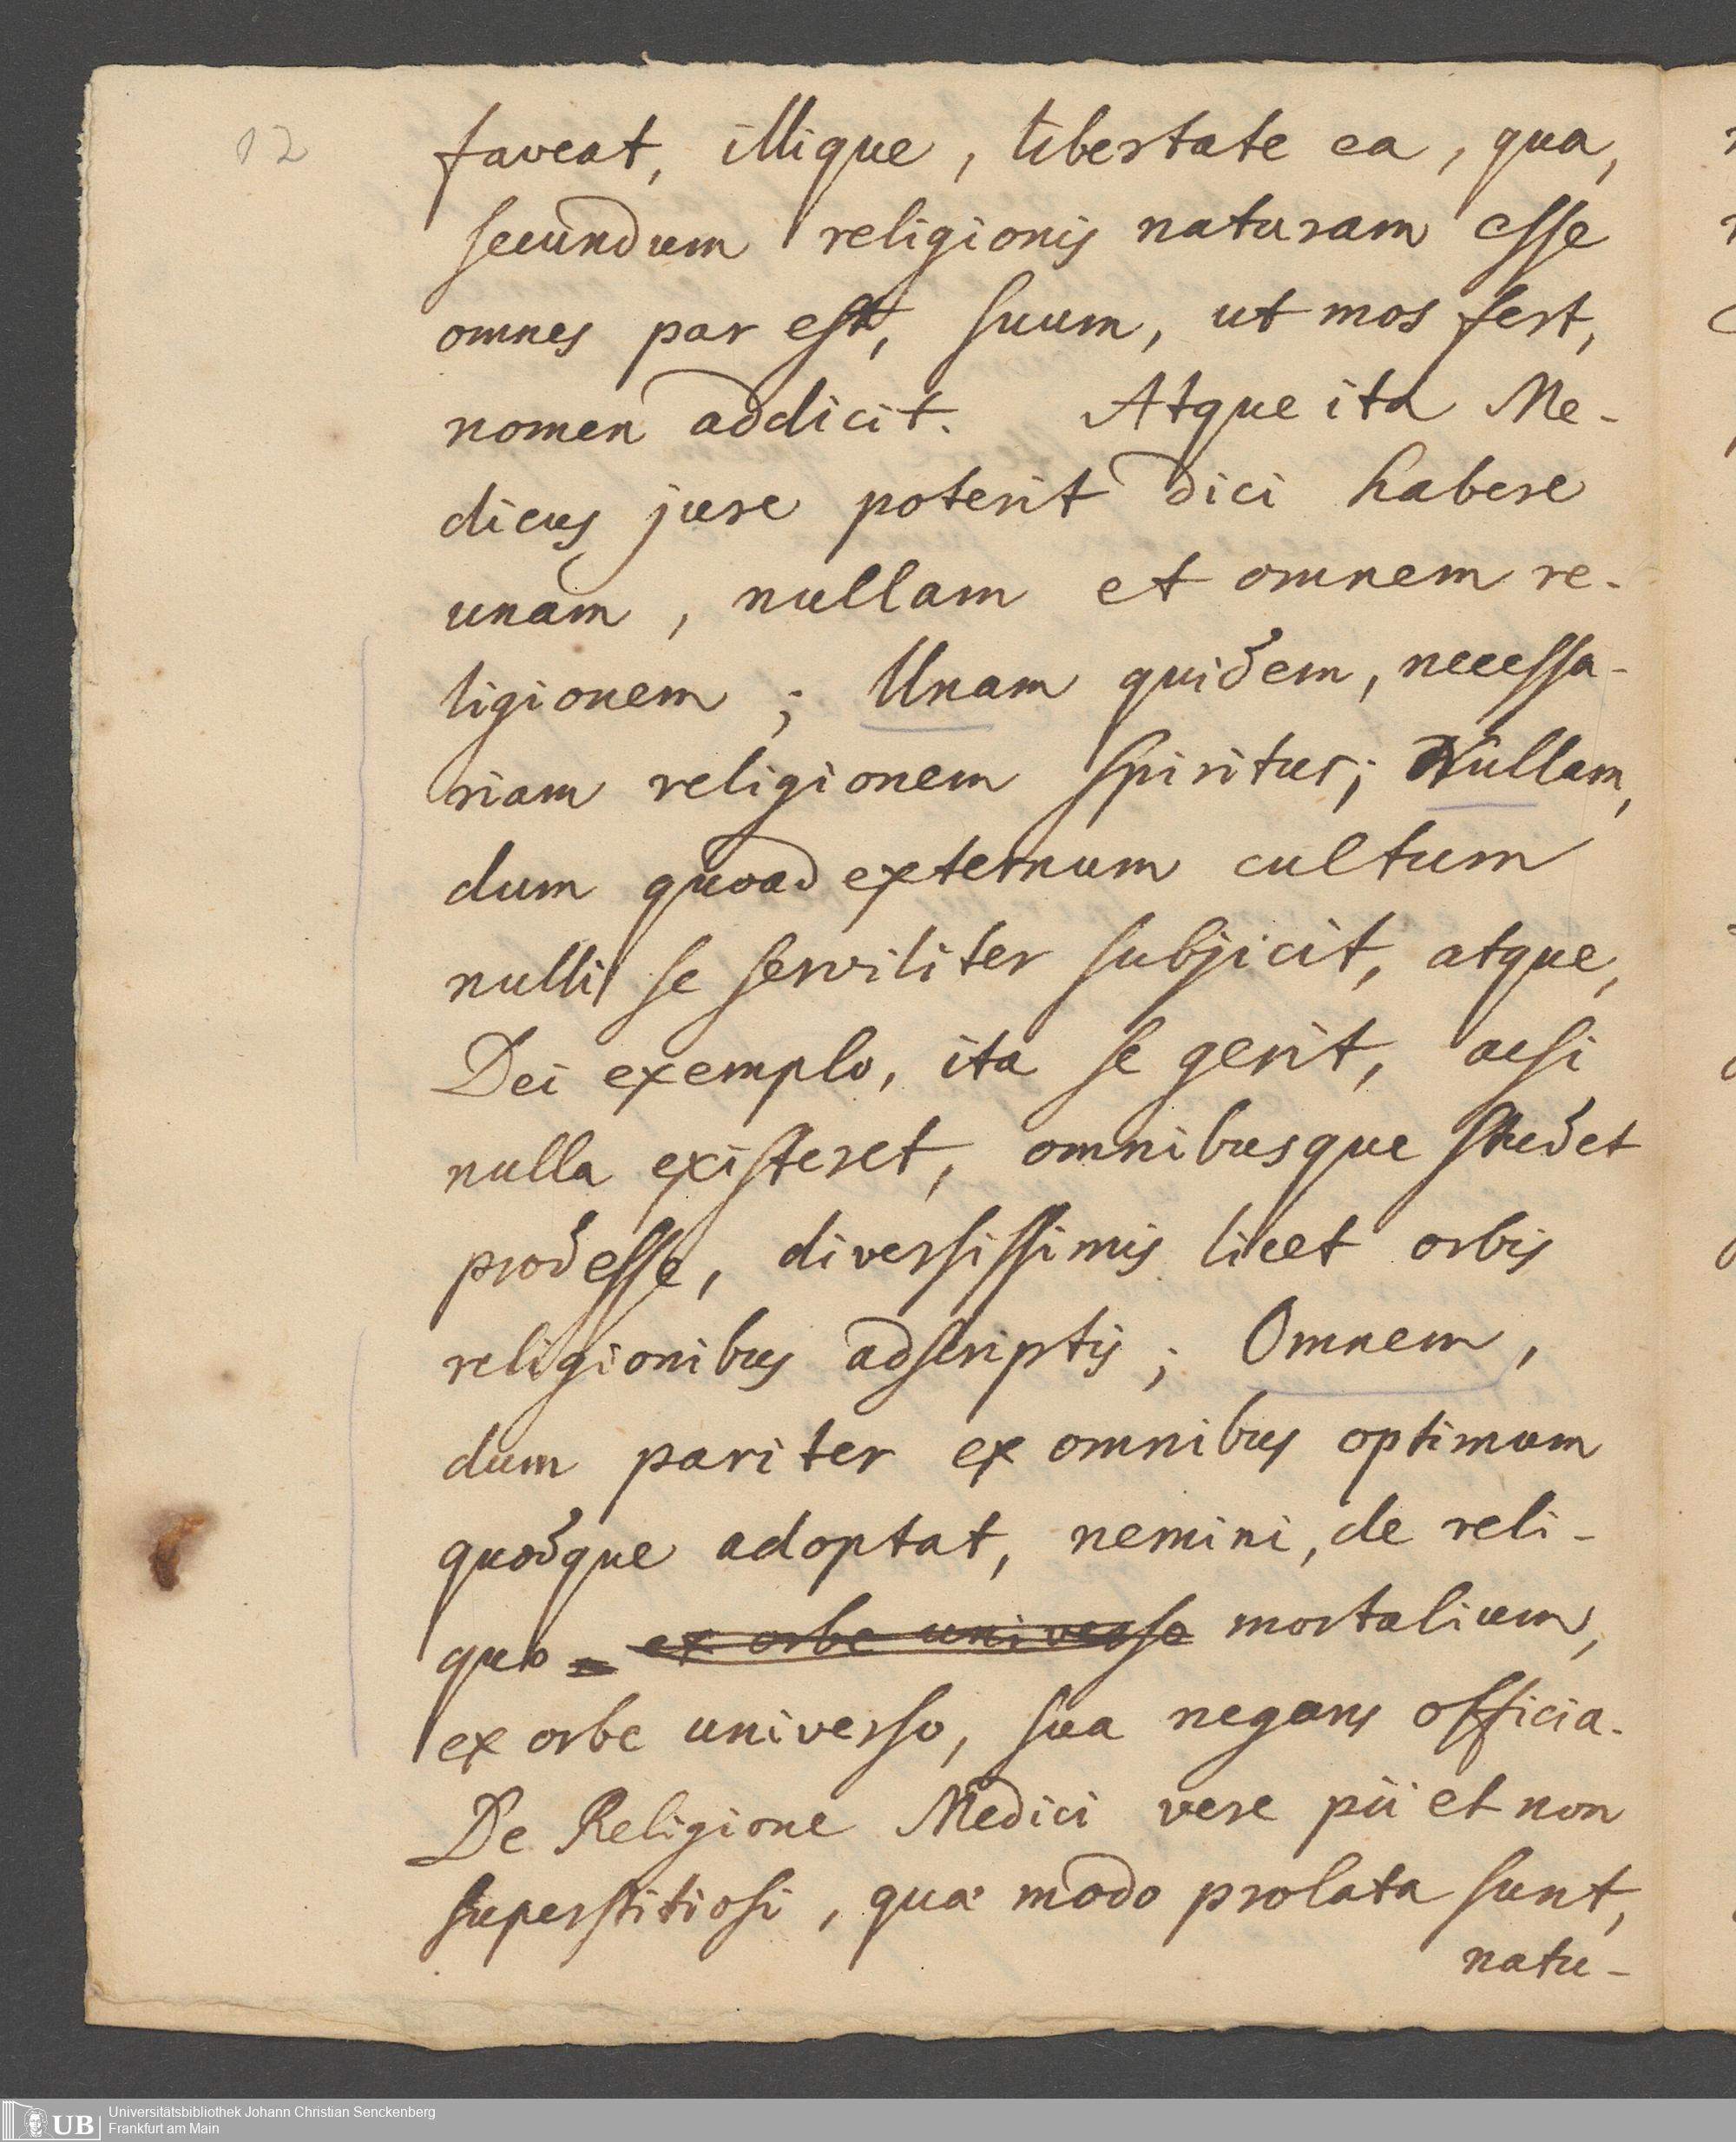 12
faveat, illique, libertate ea, qua,
secundum religionis naturam esse
omnes par est, suum, ut mos fert,
nomen addicit. Atque ita Me-
dicus jure poterit dici habere
unam, nullam et omnem re-
ligionem; Unam quidem, necessa-
riam religionem spiritus; Nullam,
dum quoad externum cultum
nulli se serviliter subjicit, atque,
Dei exemplo, ita se gerit, acsi
nulla existeret, omnibusque studet
prodesse, diversissimis licet orbis
religionibus adscriptis; Omnem,
dum pariter ex omnibus optimum
quodque adoptat, nemini, de reli-
quo ex orbe universo mortalium,
ex orbe universo, sua negans officia.
De Religione Medici vere pii et non
superstitiosi, quæ modo prolata sunt,
natu-
UB Universitätsbibliothek Johann Christian Senckenberg
Frankfurt am Main